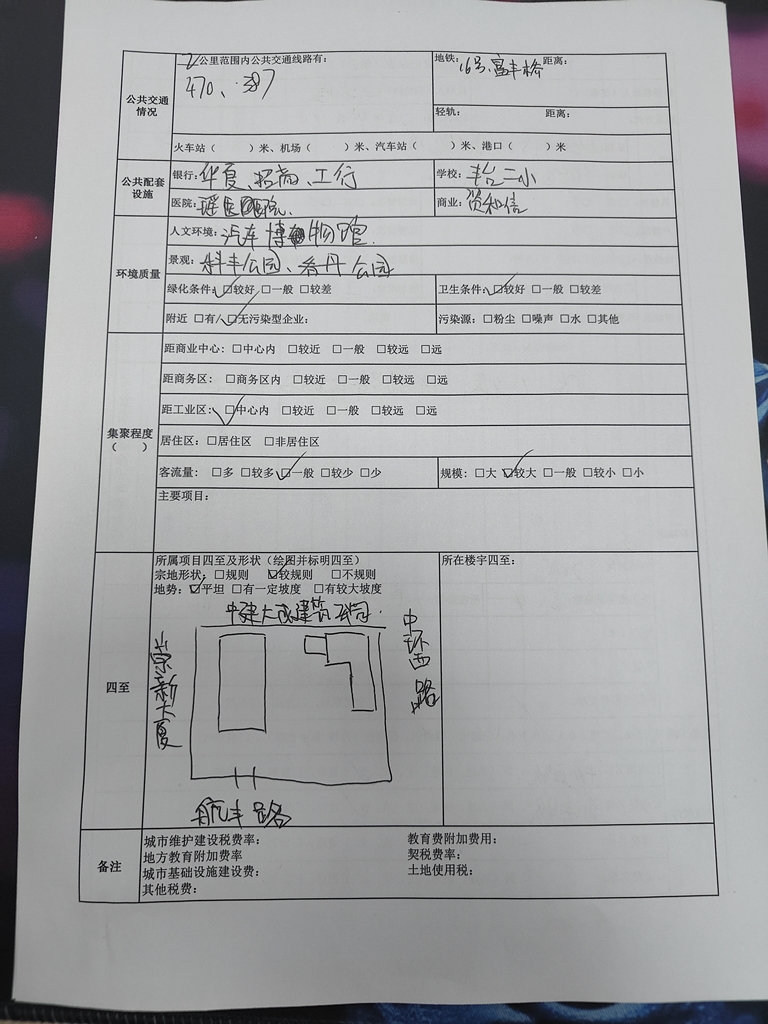 公共交通情况
2公里范围内公共交通线路有：
470、387
地铁：16号、富丰桥 距离：
轻轨： 距离：
火车站（ ）米、机场（ ）米、汽车站（ ）米、港口（ ）米
公共配套设施
银行：华夏、招商、工行
学校：丰台二小
医院：
商业：资和信
环境质量
人文环境：汽车博物馆
景观：科丰公园、看丹公园
绿化条件：☑较好 □一般 □较差
卫生条件：☑较好 □一般 □较差
附近 □有/☑无污染型企业：
污染源：□粉尘 □噪声 □水 □其他
集聚程度
（ ）
距商业中心：□中心内 □较近 □一般 □较远 □远
距商务区：□商务区内 □较近 □一般 □较远 □远
距工业区：☑中心内 □较近 □一般 □较远 □远
居住区：□居住区 □非居住区
客流量：□多 □较多 ☑一般 □较少 □少
规模：□大 ☑较大 □一般 □较小 □小
主要项目：
四至
所属项目四至及形状（绘图并标明四至）
宗地形状：□规则 ☑较规则 □不规则
地势：☑平坦 □有一定坡度 □有较大坡度
所在楼宇四至：
中建大成建筑公司.
中环西路
荣新大厦
航丰路
备注
城市维护建设税费率：
教育费附加费用：
地方教育附加费率
契税费率：
城市基础设施建设费：
土地使用税：
其他税费：